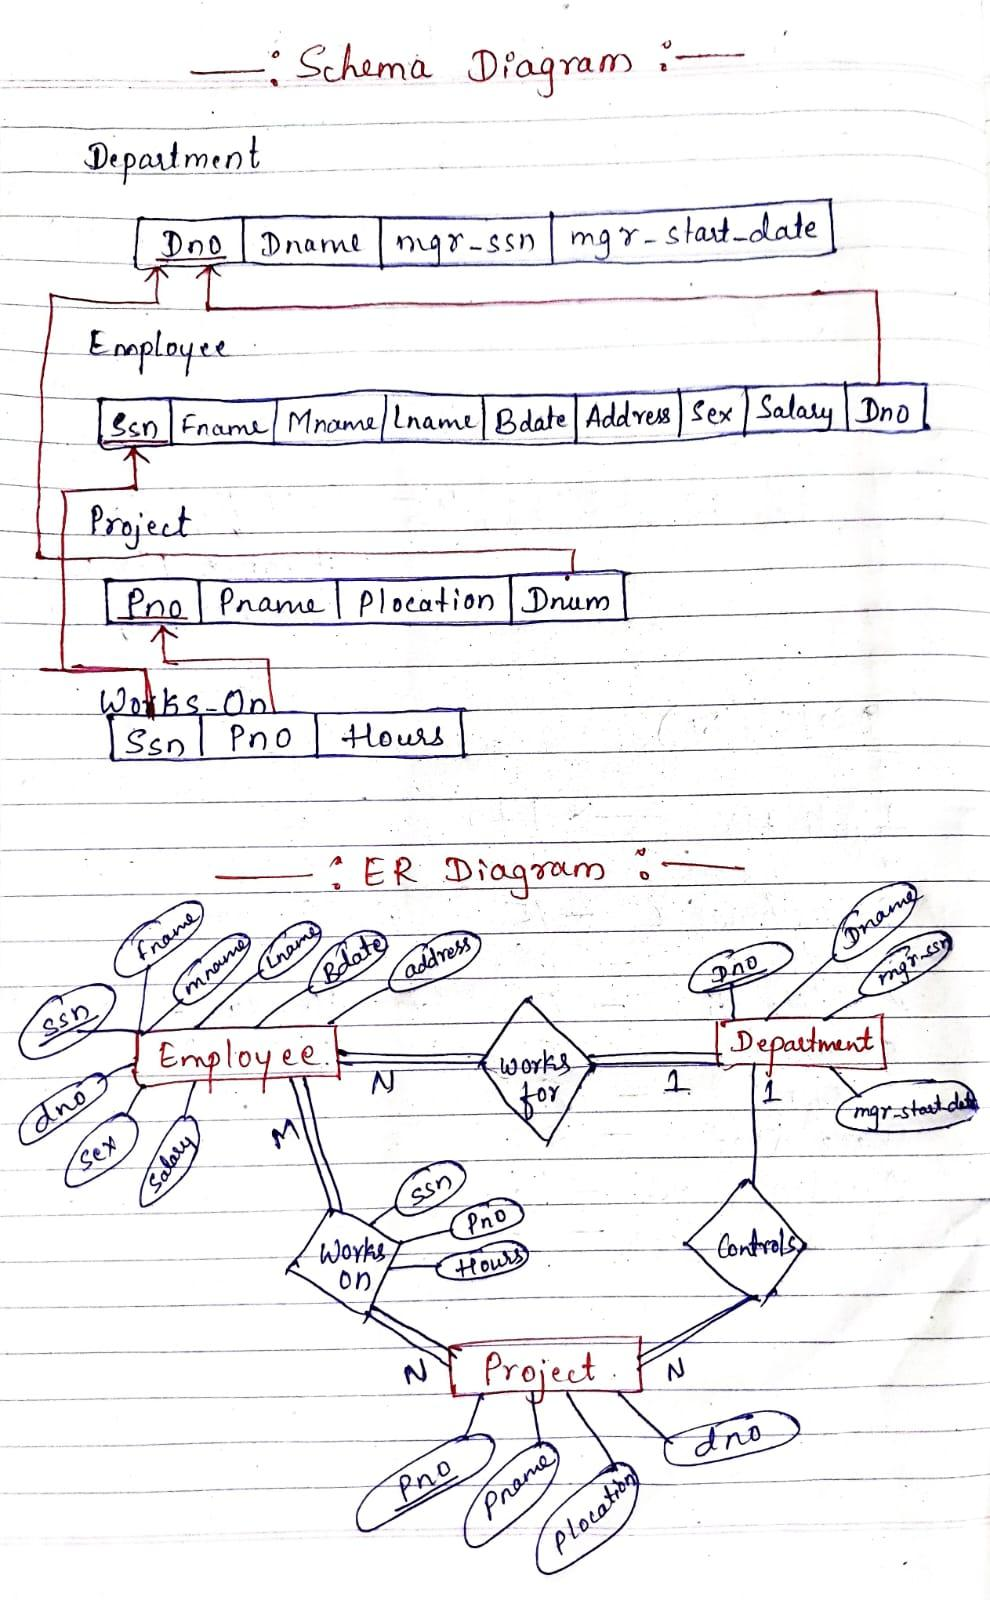 —: Schema Diagram :—
Department
Dno Dname mgr-ssn mgr-start-date
Employee
Ssn Fname Mname Lname Bdate Address Sex Salary Dno
Project
Pno Pname Plocation Dnum
Works-On
Ssn Pno Hours
—: ER Diagram :—
Fname
mname
Lname
Bdate
address
Dno
Dname
mgr-ssn
ssn
Employee
N
Works
for
1
Department
1
mgr-start-date
dno
Sex
Salary
M
ssn
Pno
Hours
Works
on
Controls
N
Project
N
Pno
Pname
Plocation
dno